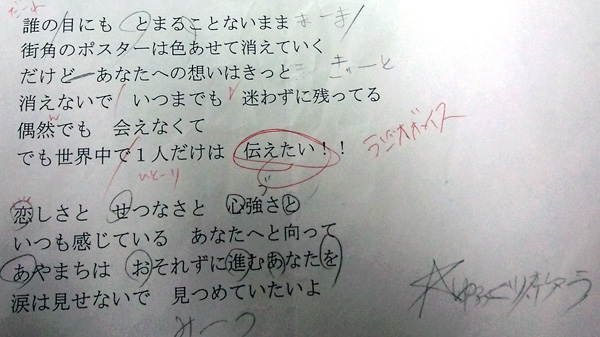 だーれ
誰の目にも　とまることないまま まーま
街角のポスターは色あせて消えていく
だけど　あなたへの想いはきっと ぎーと
消えないで　いつまでも　迷わずに残ってる
偶然でも　会えなくて
でも世界中で１人だけは　伝えたい！！ ラジオボイス
ひとーり
恋しさと　せつなさと　心強さと
いつも感じている　あなたへと向って
あやまちは　おそれずに進むあなたを
涙は見せないで　見つめていたいよ
みーつ